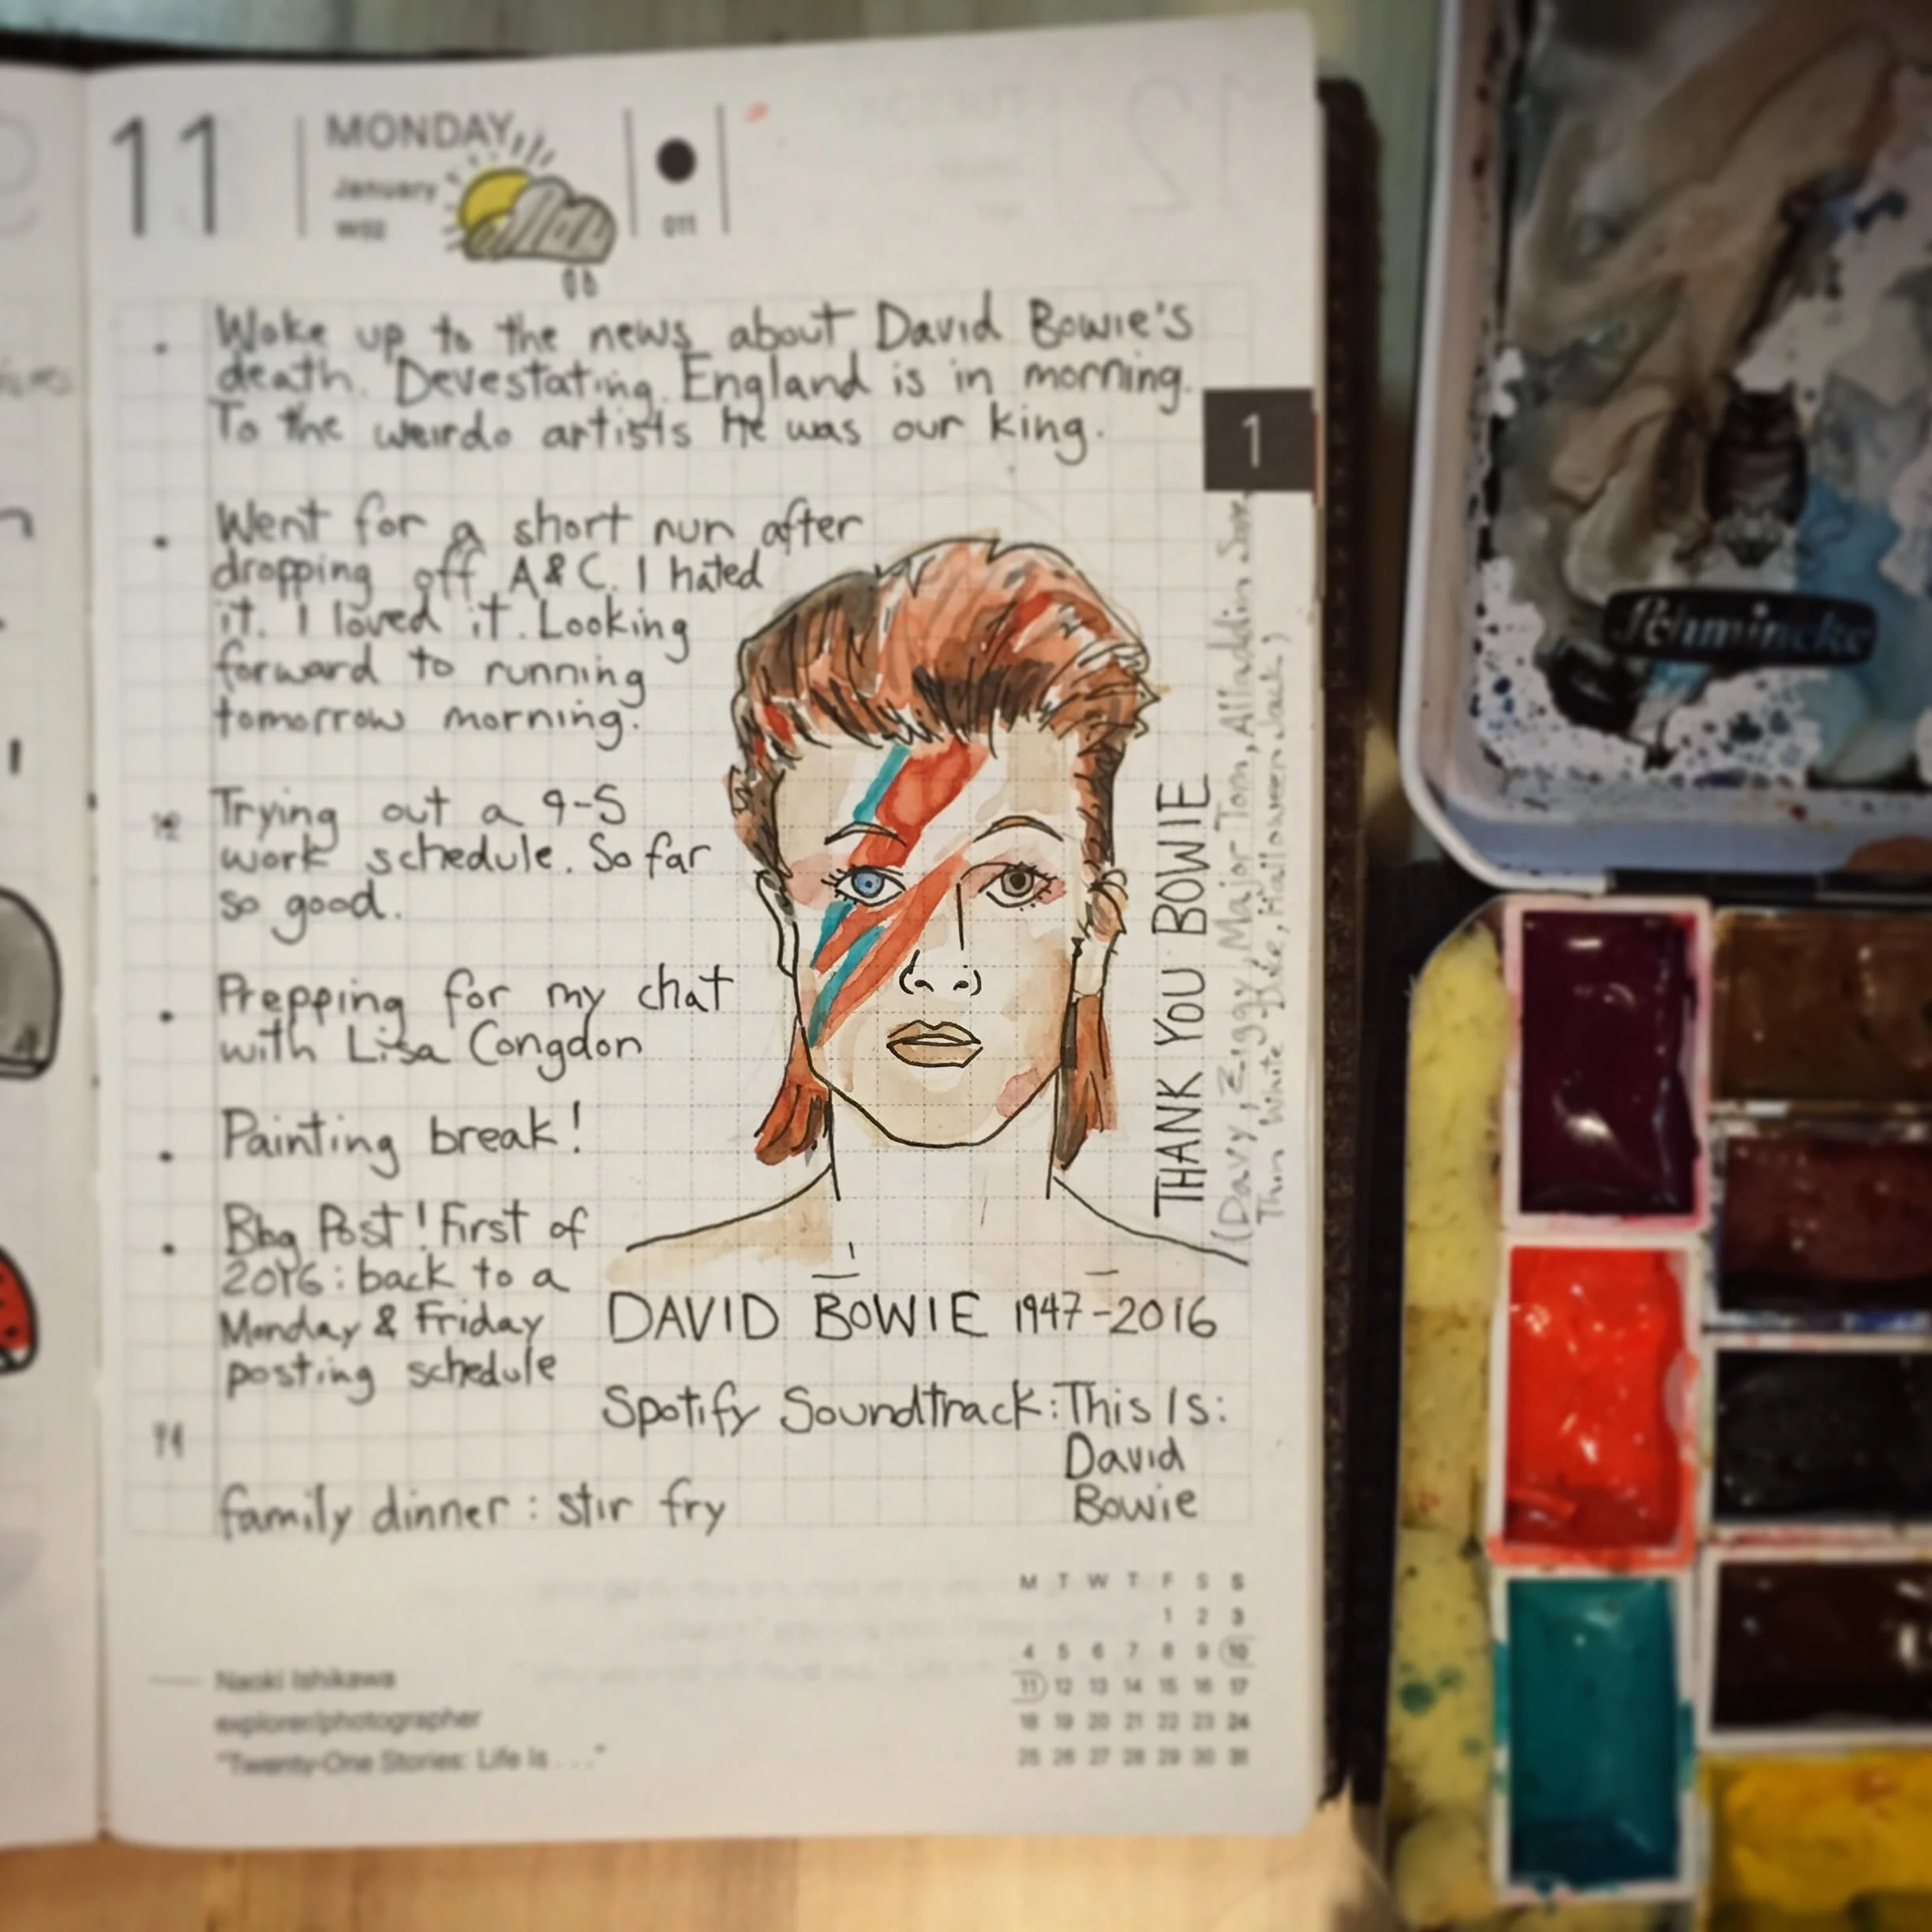 11
MONDAY
January
W02
011
Woke up to the news about David Bowie's
death. Devestating. England is in morning.
To the weirdo artists he was our king.
1
Went for a short run after
dropping off A&C. I hated
it. I loved it. Looking
forward to running
tomorrow morning.
Trying out a 9-5
work schedule. So far
so good.
Prepping for my chat
with Lisa Congdon
Painting break!
Blog Post! First of
2016: back to a
Monday & Friday
posting schedule
family dinner: stir fry
THANK YOU BOWIE
(Davy, Ziggy, Major Tom, Alladdin Sane,
Thin White Duke, Halloween Jack)
DAVID BOWIE 1947-2016
Spotify Soundtrack: This Is:
David
Bowie
M T W T F S S
1 2 3
4 5 6 7 8 9 10
11 12 13 14 15 16 17
18 19 20 21 22 23 24
25 26 27 28 29 30 31
Naoki Ishikawa
explorer/photographer
"Twenty-One Stories: Life Is . . ."
Schmincke